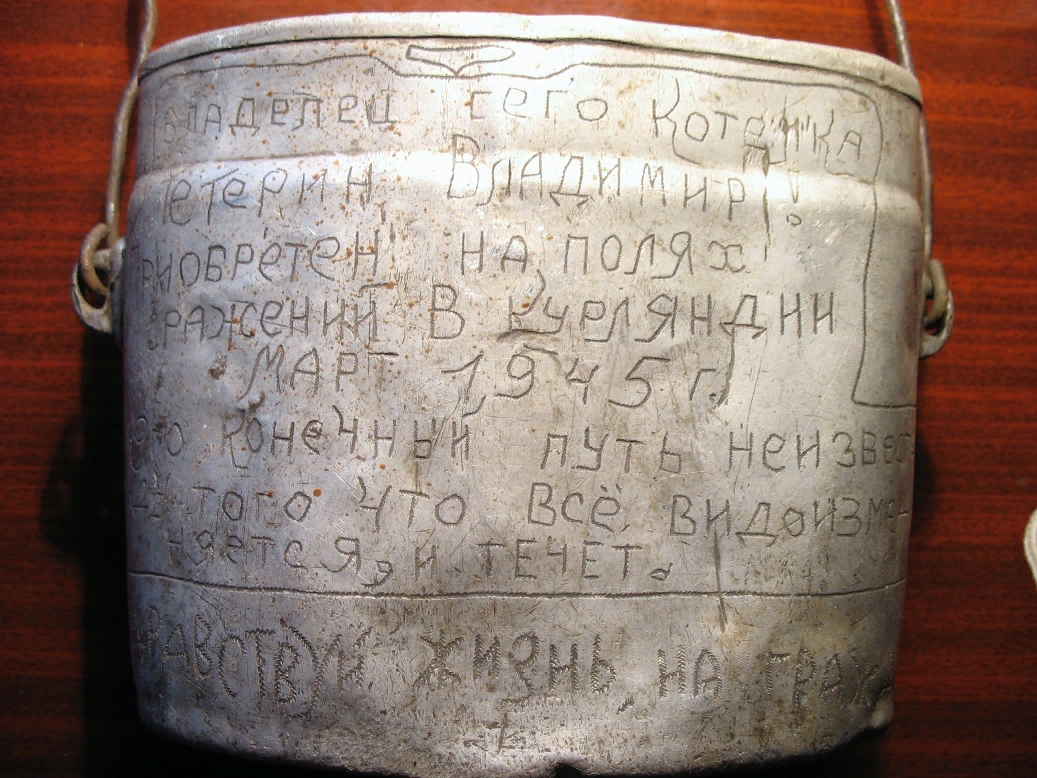 Владелец сего котелка
Петерин Владимир!
Приобретен на полях
сражений в Курляндии
МАРТ 1945 г.
Его конечный путь неизвес-
того что всё видоизме-
няется, и течет.
Здравствуй жизнь на граж